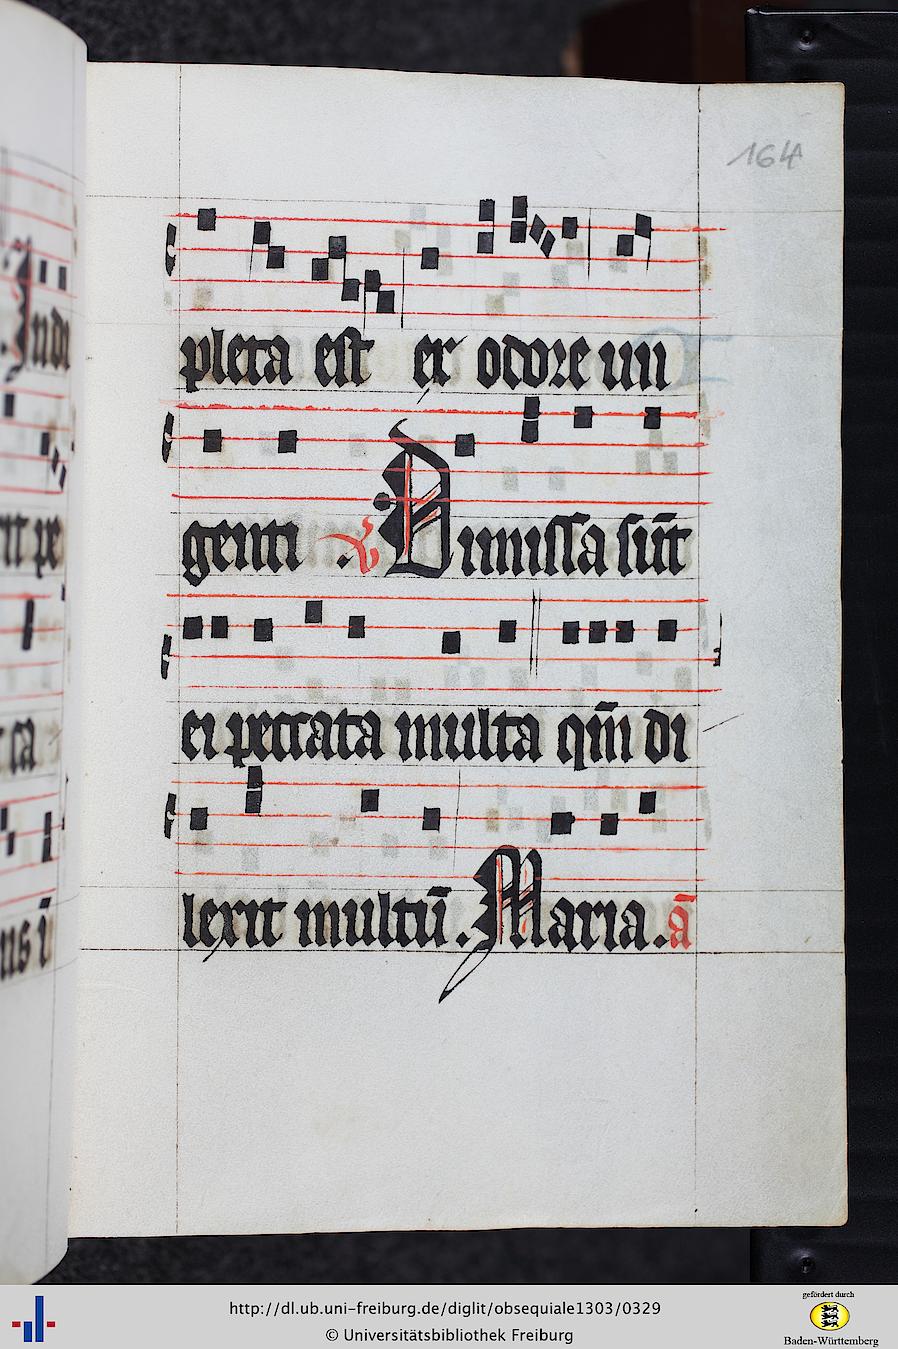 164
pleta est ex odore un
genti . V Dimissa sūt
ei peccata multa qm̄ di
lexit multū . Maria . ā
http://dl.ub.uni-freiburg.de/diglit/obsequiale1303/0329
© Universitätsbibliothek Freiburg
gefördert durch
Baden-Württemberg